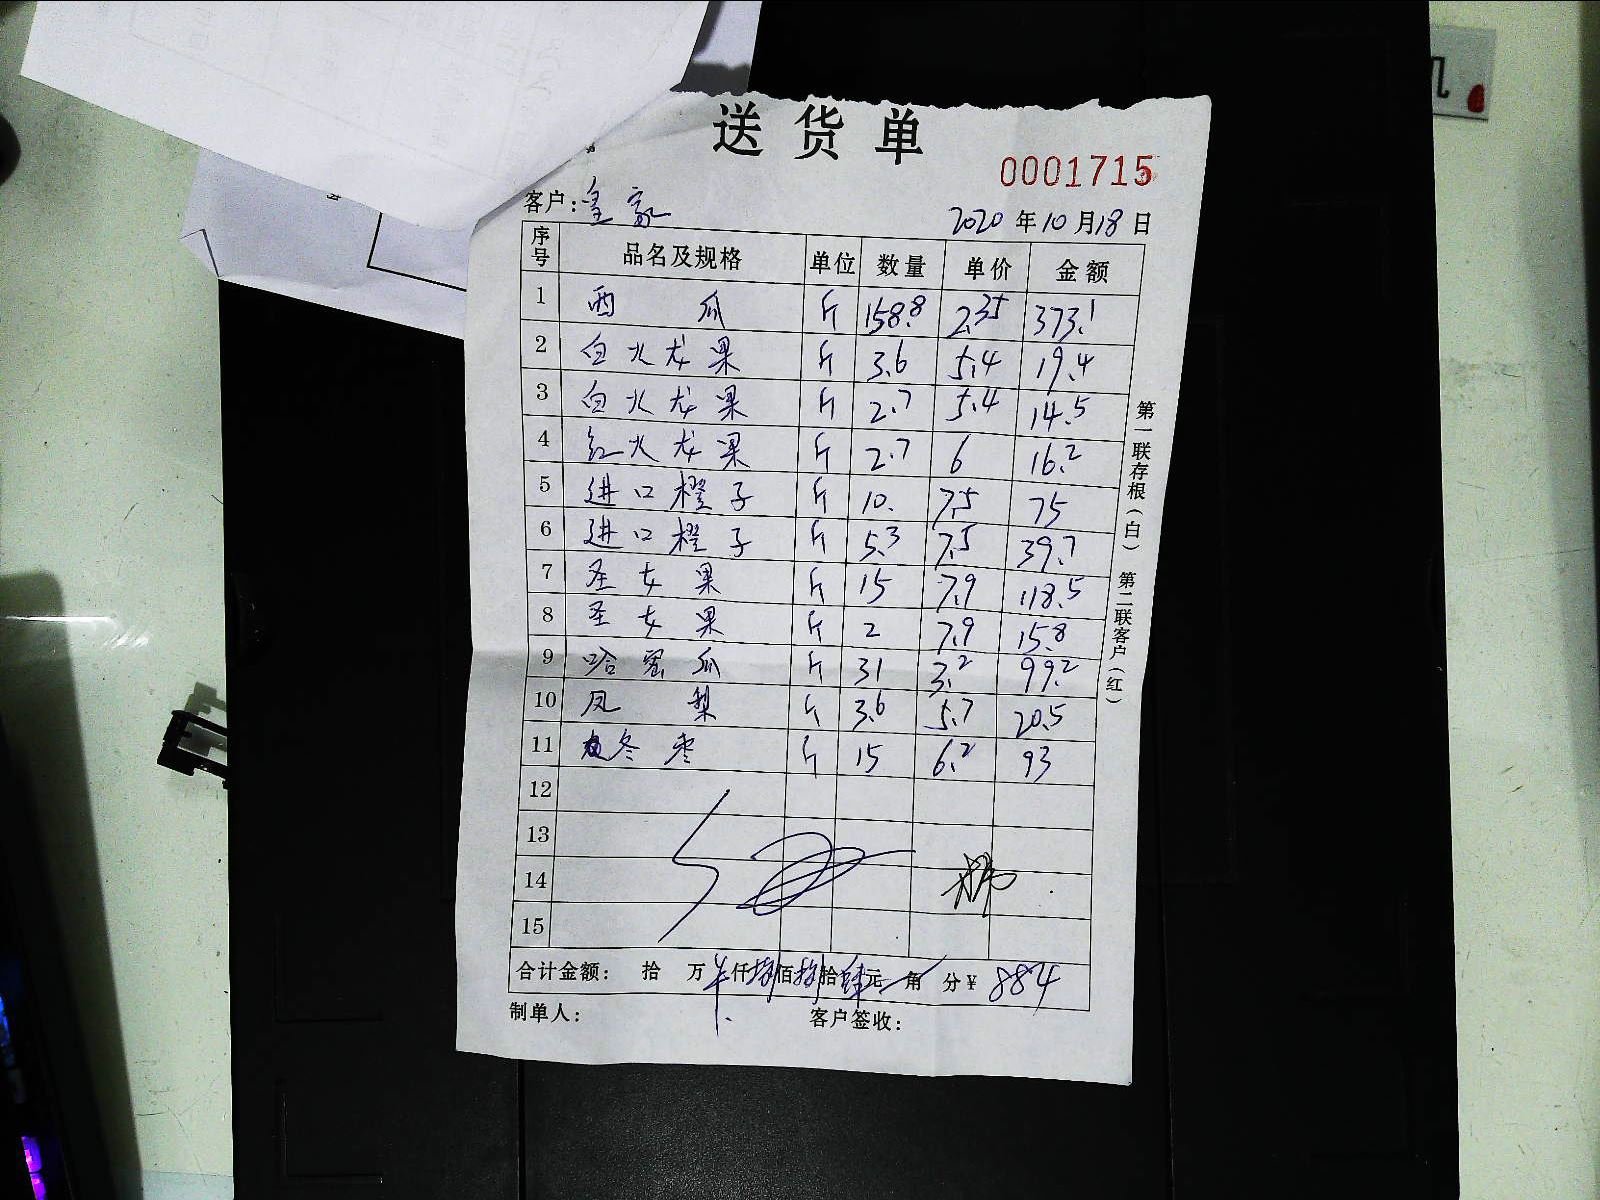 送货单
0001715
客户：皇家
2020 年 10 月 18 日
序号 品名及规格 单位 数量 单价 金额
1 西瓜 斤 158.8 2.35 373.1
2 白火龙果 斤 3.6 5.4 19.4
3 白火龙果 斤 2.7 5.4 14.5
4 红火龙果 斤 2.7 6 16.2
5 进口橙子 斤 10. 7.5 75
6 进口橙子 斤 5.3 7.5 39.7
7 圣女果 斤 15 7.9 118.5
8 圣女果 斤 2 7.9 15.8
9 哈密瓜 斤 31 3.2 99.2
10 凤梨 斤 3.6 5.7 20.5
11 冬枣 斤 15 6.2 93
12
13
14
15
合计金额： 拾 万 仟 捌 佰 捌 拾 肆 元 角 分 ¥ 884
制单人： 客户签收：
第一联存根（白） 第二联客户（红）